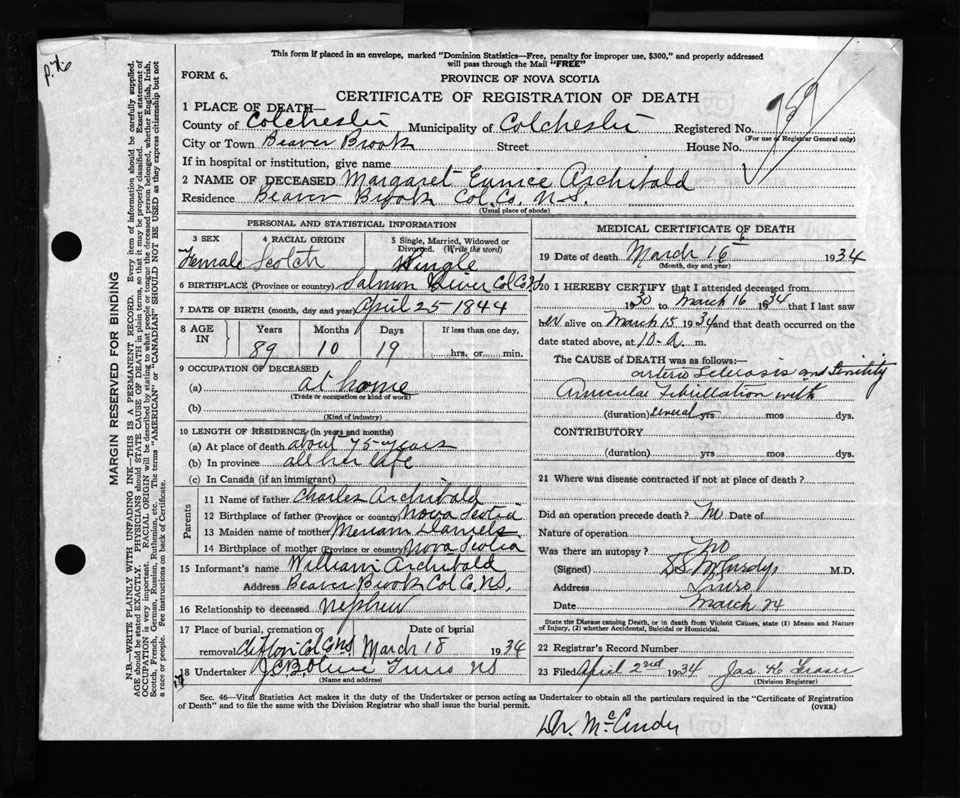 p. 76
This form if placed in an envelope, marked "Dominion Statistics—Free, penalty for improper use, $300," and properly addressed
will pass through the Mail "FREE"
FORM 6.
PROVINCE OF NOVA SCOTIA
CERTIFICATE OF REGISTRATION OF DEATH
1 PLACE OF DEATH—
County of Colchester Municipality of Colchester Registered No.
(For use of Registrar General only)
City or Town Beaver Brook Street House No.
If in hospital or institution, give name
2 NAME OF DECEASED Margaret Eunice Archibald
Residence Beaver Brook Col. Co. N.S.
(Usual place of abode)
PERSONAL AND STATISTICAL INFORMATION
3 SEX 4 RACIAL ORIGIN 5 Single, Married, Widowed or Divorced. (Write the word)
Female Scotch Single
6 BIRTHPLACE (Province or country) Salmon River Col Co
7 DATE OF BIRTH (month, day and year) April 25-1844
8 AGE IN Years Months Days If less than one day,
89 10 19 hrs. or min.
9 OCCUPATION OF DECEASED
(a) at home
(Trade or occupation or kind of work)
(b)
(Kind of industry)
10 LENGTH OF RESIDENCE (in years and months)
(a) At place of death about 75-years
(b) In province all her life
(c) In Canada (if an immigrant)
Parents
11 Name of father Charles Archibald
12 Birthplace of father (Province or country) Nova Scotia
13 Maiden name of mother Meriam Daniels
14 Birthplace of mother (Province or country) Nova Scotia
15 Informant's name William Archibald
Address Beaver Brook Col Co. N.S.
16 Relationship to deceased nephew
17 Place of burial, cremation or Date of burial
removal Clifton Col Co NS March 18 1934
18 Undertaker Truro NS
MEDICAL CERTIFICATE OF DEATH
19 Date of death March 16 1934
(Month, day and year)
20 I HEREBY CERTIFY that I attended deceased from
1930 to March 16 1934 that I last saw
her alive on March 15 1934 and that death occurred on the
date stated above, at 10-a. m.
The CAUSE OF DEATH was as follows:—
arterio Sclerosis and Senility
Auricular Fibrillation with
(duration) several yrs mos dys.
CONTRIBUTORY
(duration) yrs mos dys.
21 Where was disease contracted if not at place of death?
Did an operation precede death? Date of
Nature of operation
Was there an autopsy? no
(Signed) M.D.
Address Truro
Date March 24
State the Disease causing Death, or in death from Violent Causes, state (1) Means and Nature
of Injury, (2) whether Accidental, Suicidal or Homicidal.
22 Registrar's Record Number
23 Filed April 2nd 1934 Jas H Fraser
(Division Registrar)
Sec. 46—Vital Statistics Act makes it the duty of the Undertaker or person acting as Undertaker to obtain all the particulars required in the "Certificate of Registration
of Death" and to file the same with the Division Registrar who shall issue the burial permit.
(OVER)
Dr. McCurdy
MARGIN RESERVED FOR BINDING
N.B.—WRITE PLAINLY WITH UNFADING INK—THIS IS A PERMANENT RECORD. Every item of information should be carefully supplied.
AGE should be stated EXACTLY. PHYSICIANS should STATE CAUSE OF DEATH in plain terms, so that it may be properly classified. Exact statement of
OCCUPATION is very important. RACIAL ORIGIN will be described by stating to what people or tongue the deceased person belonged, whether English, Irish,
Scotch, French, German, Russian, Ruthenian, etc. The terms "AMERICAN" or "CANADIAN" SHOULD NOT BE USED as they express citizenship but not
a race or people. See instructions on back of Certificate.